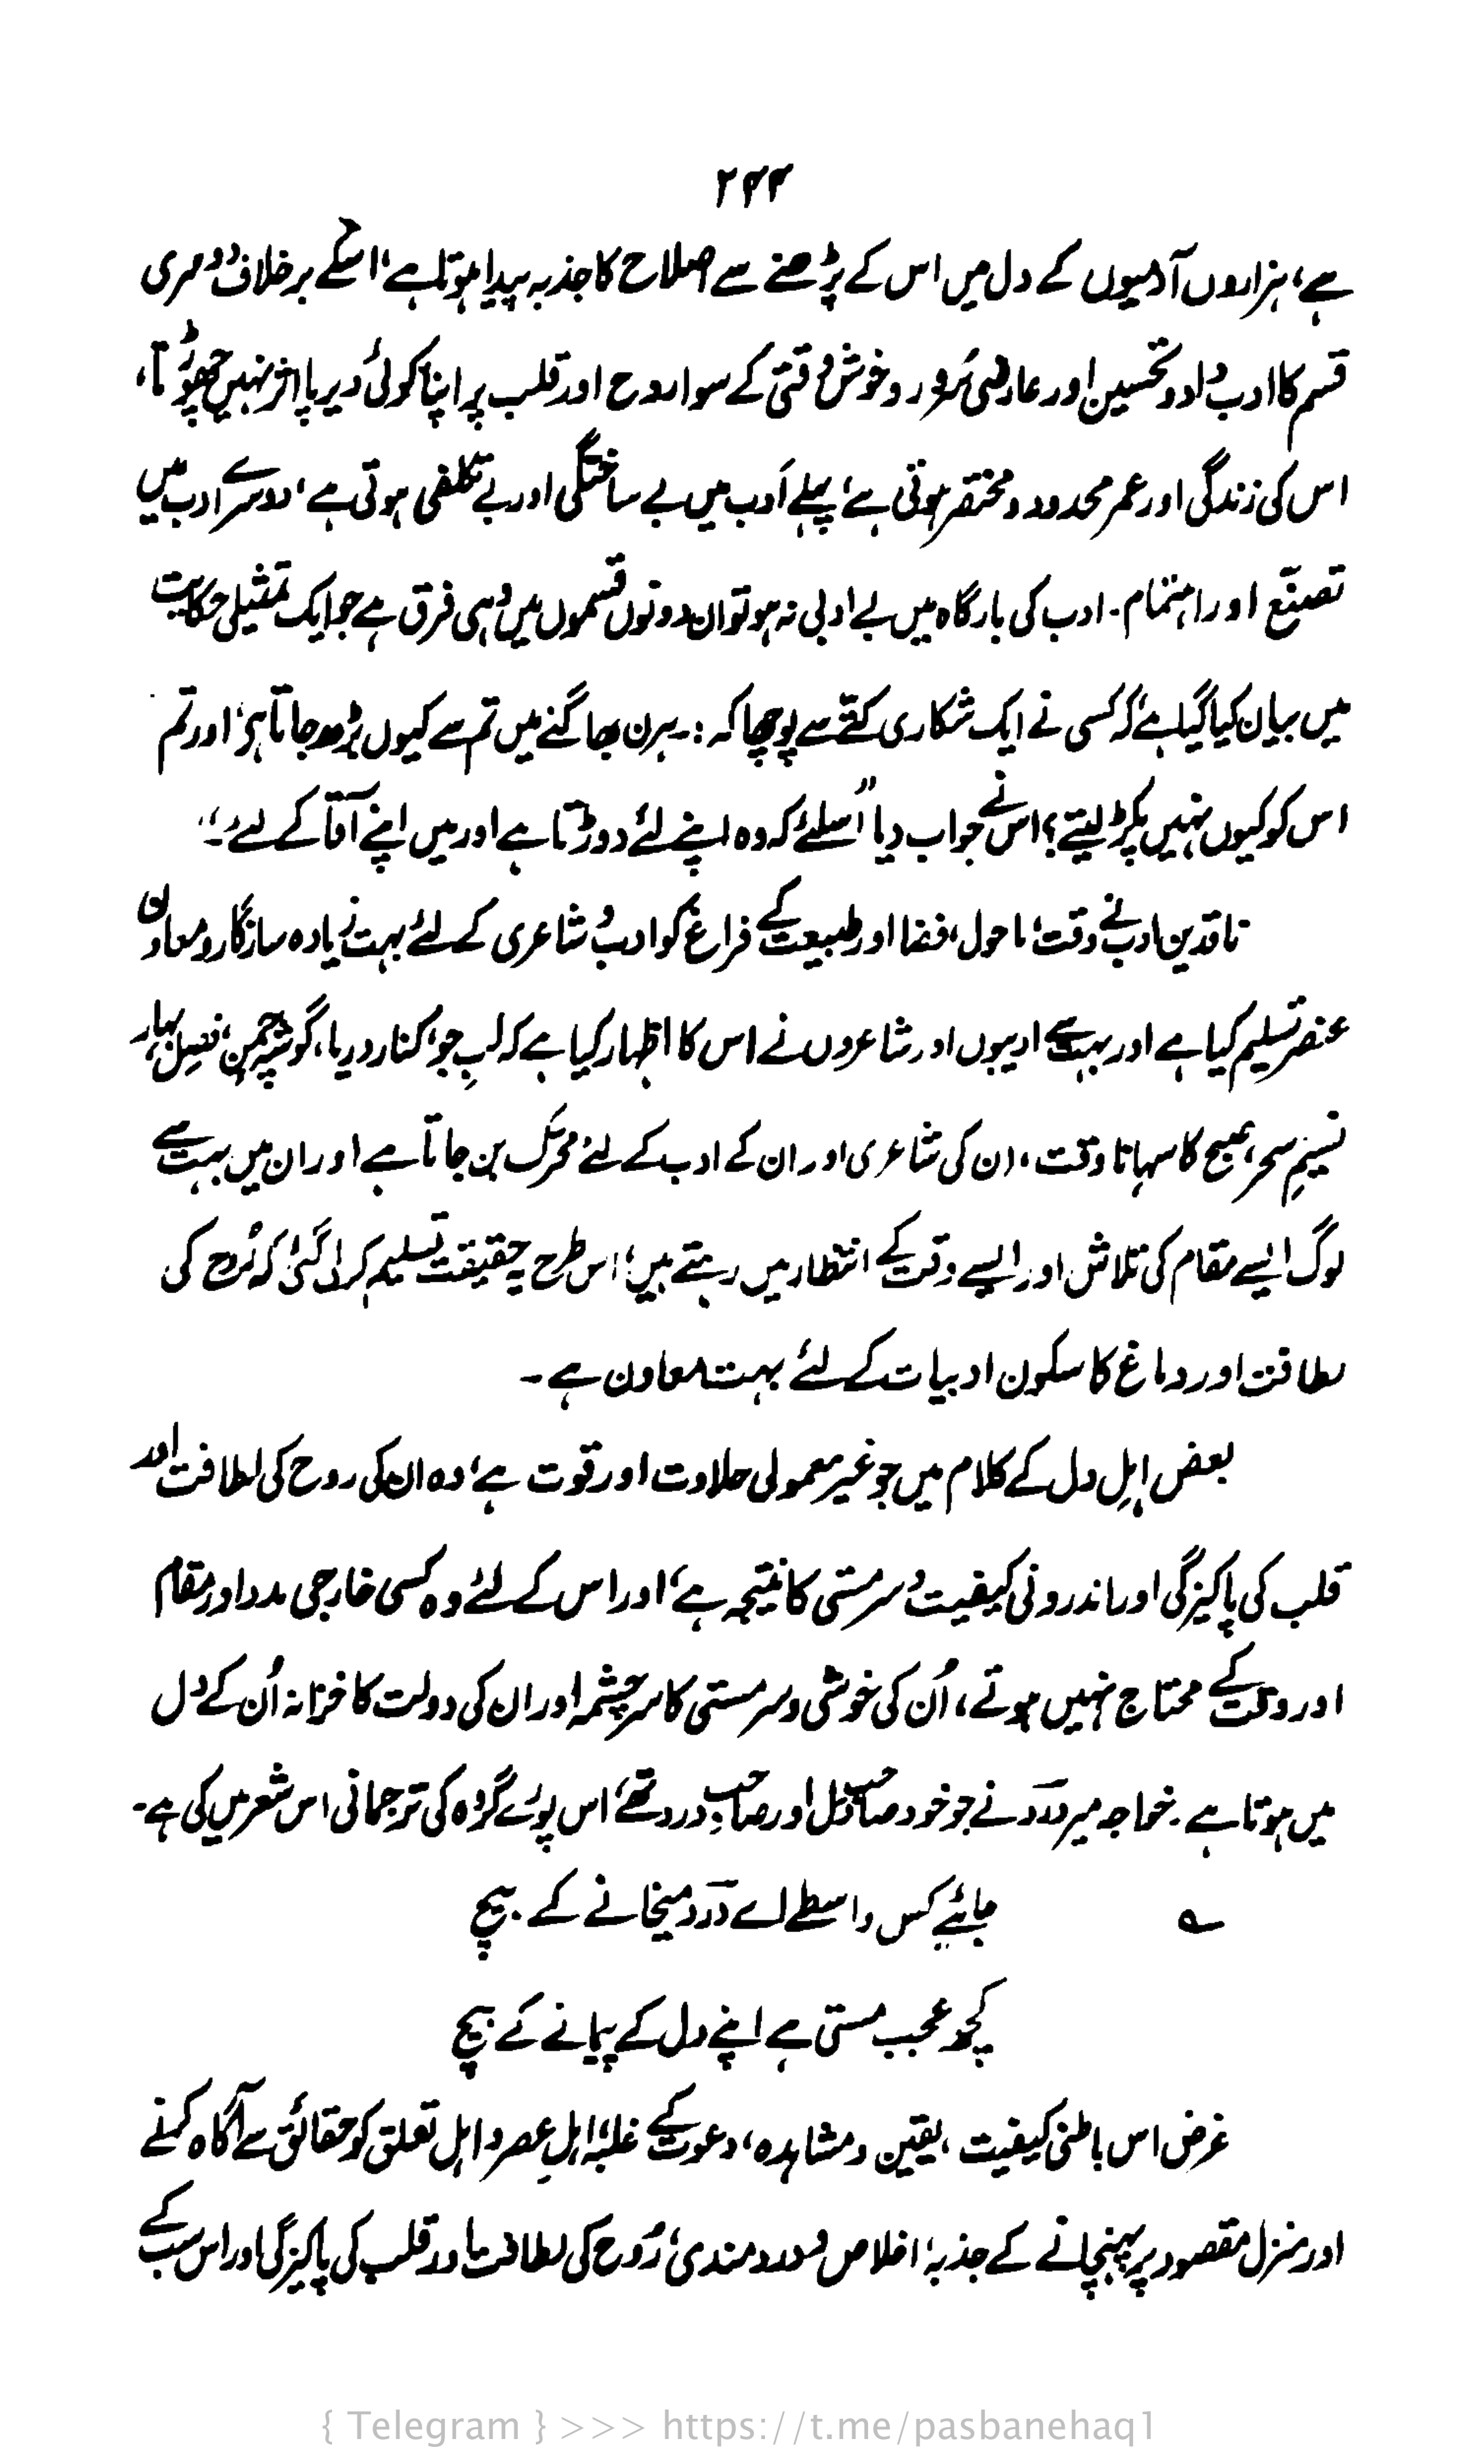 ۲۴۴
ہے، ہزاروں آدمیوں کے دل میں اس کے پڑھنے سے اصلاح کا جذبہ پیدا ہوتا ہے، اسکے برخلاف دوسری
قسم کا ادب داد و تحسین اور عارضی سُرور و خوش وقتی کے سوا روح اور قلب پر اپنا کوئی دیرپا اثر نہیں چھوڑتا،
اس کی زندگی اور عمر محدود و مختصر ہوتی ہے، پہلے اَدب میں بے ساختگی اور بے تکلفی ہوتی ہے، دوسرے ادب میں
تصنّع اور اہتمام۔ ادب کی بارگاہ میں بے ادبی نہ ہو تو ان دونوں قسموں میں وہی فرق ہے جو ایک تمثیلی حکایت
میں بیان کیا گیا ہے، کہ کسی نے ایک شکاری کتّے سے پوچھا کہ :۔ ہرن بھاگنے میں تم سے کیوں بڑھ جاتا ہی، اور تم
اس کو کیوں نہیں پکڑ لیتے؟ اس نے جواب دیا "اسلئے کہ وہ اپنے لئے دوڑتا ہے اور میں اپنے آقا کے لئے"۔
ناقدینِ ادب نے وقت، ماحول، فضا اور طبیعت کے فراغ کو ادب و شاعری کے لئے بہت زیادہ سازگار و معاون
عنصر تسلیم کیا ہے اور بہت سے ادیبوں اور شاعروں نے اس کا اظہار کیا ہے کہ لبِ جو، کنار دریا، گوشۂ چمن، فصلِ بہار،
نسیمِ سحر، صبح کا سہانا وقت، ان کی شاعری اور ان کے ادب کے لئے محرّک بن جاتا ہے اور ان میں بہت سے
لوگ ایسے مقام کی تلاش اور ایسے وقت کے انتظار میں رہتے ہیں، اس طرح یہ حقیقت تسلیم کر لی گئی کہ رُوح کی
لطافت اور دماغ کا سکون ادبیات کے لئے بہت معاون ہے۔
بعض اہلِ دل کے کلام میں جو غیر معمولی حلاوت اور قوت ہے، وہ ان کی روح کی لطافت اور
قلب کی پاکیزگی اور اندرونی کیفیت و سرمستی کا نتیجہ ہے، اور اس کے لئے وہ کسی خارجی مدد اور مقام
اور وقت کے محتاج نہیں ہوتے، اُن کی خوشی و سرمستی کا سرچشمہ اور ان کی دولت کا خزانہ اُن کے دل
میں ہوتا ہے۔ خواجہ میر درد نے جو خود صاحبِ دل اور صاحبِ درد تھے، اس پورے گروہ کی ترجمانی اس شعر میں کی ہے۔
؎ جائیے کس واسطے اے درد میخانے کے بیچ
کچھ عجب مستی ہے اپنے دل کے پیمانے کے بیچ
غرض اس باطنی کیفیت، یقین و مشاہدہ، دعوت کے غلبہ، اہلِ عصر و اہل تعلق کو حقائق سے آگاہ کرنے
اور منزل مقصود پر پہنچانے کے جذبہ، اخلاص و دردمندی، رُوح کی لطافت اور قلب کی پاکیزگی اور اس سب کے
{ Telegram } >>> https://t.me/pasbanehaq1